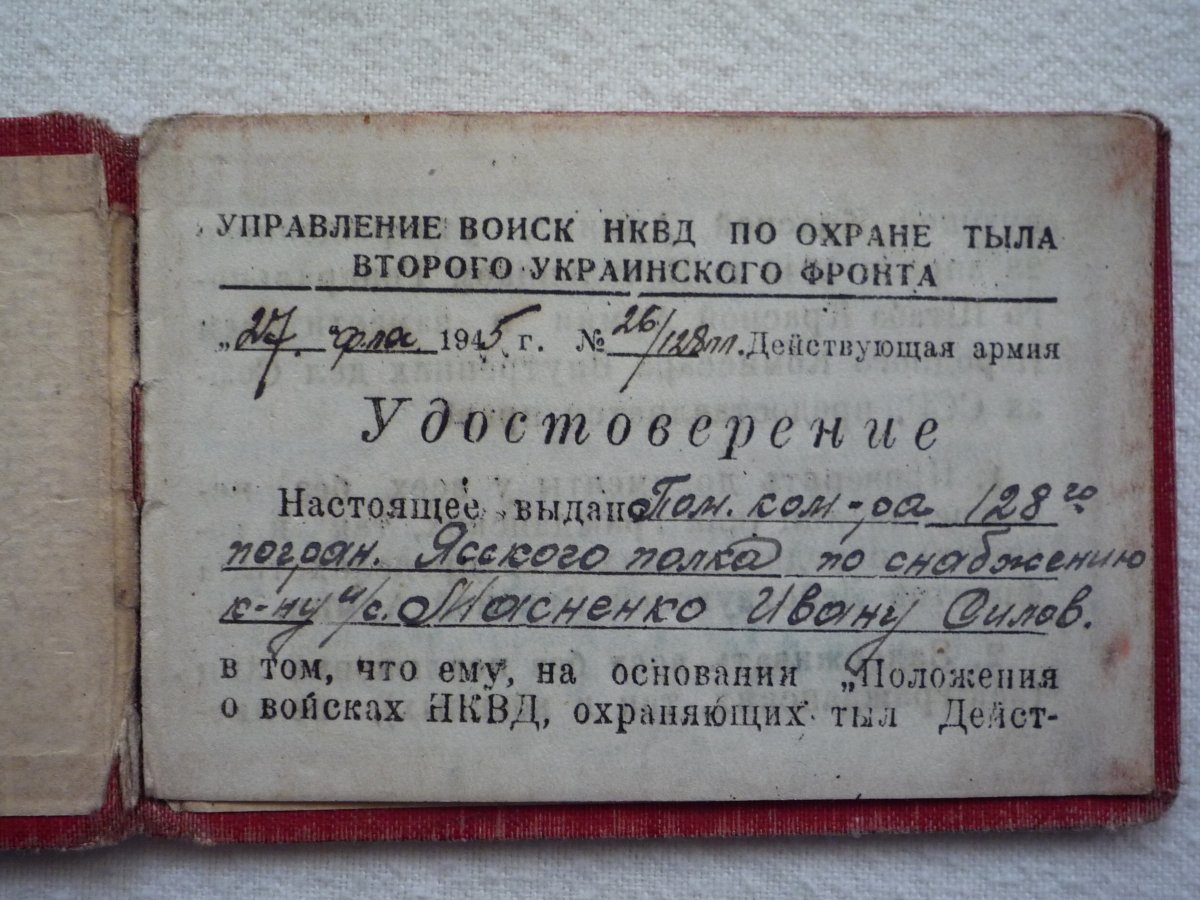 УПРАВЛЕНИЕ ВОЙСК НКВД ПО ОХРАНЕ ТЫЛА
ВТОРОГО УКРАИНСКОГО ФРОНТА
„27. ф-ла 1945 г. № 26/128пп. Действующая армия
Удостоверение
Настоящее выдано Пом. ком-ра 128го
погран. Ясского полка по снабжению
к-ну и/с. Масненко Ивану Силов.
в том, что ему, на основании „Положения
о войсках НКВД, охраняющих тыл Дейст-